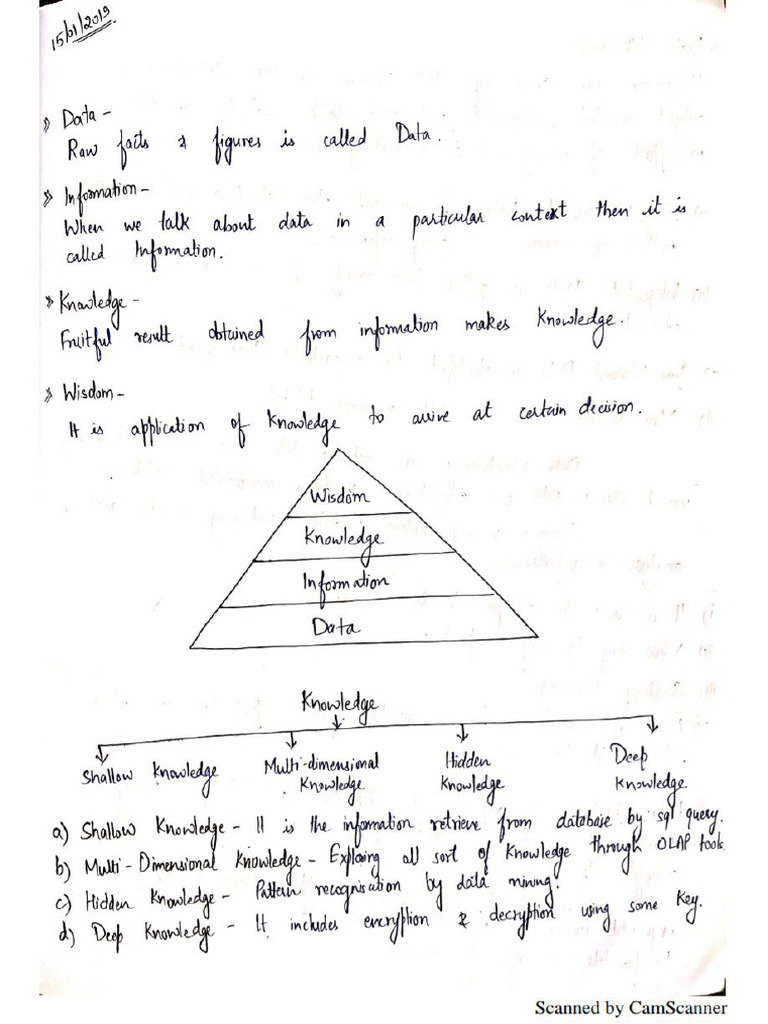 15/01/2019
» Data -
Raw facts & figures is called Data.
» Information -
When we talk about data in a particular context then it is
called Information.
» Knowledge -
Fruitful result obtained from information makes Knowledge.
» Wisdom -
It is application of Knowledge to arrive at certain decision.
Wisdom
Knowledge
Information
Data
Knowledge
Shallow Knowledge
Multi-dimensional
Knowledge
Hidden
Knowledge
Deep
Knowledge
a) Shallow Knowledge - It is the information retrieve from database by sql query.
b) Multi-Dimensional Knowledge - Exploring all sort of Knowledge through OLAP tools.
c) Hidden Knowledge - Pattern recognisation by data mining.
d) Deep Knowledge - It includes encryption & decryption using some Key.
Scanned by CamScanner